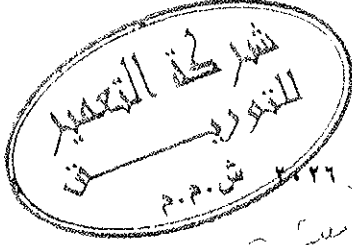 شركة التعمير
للتوريق
ش.م.م